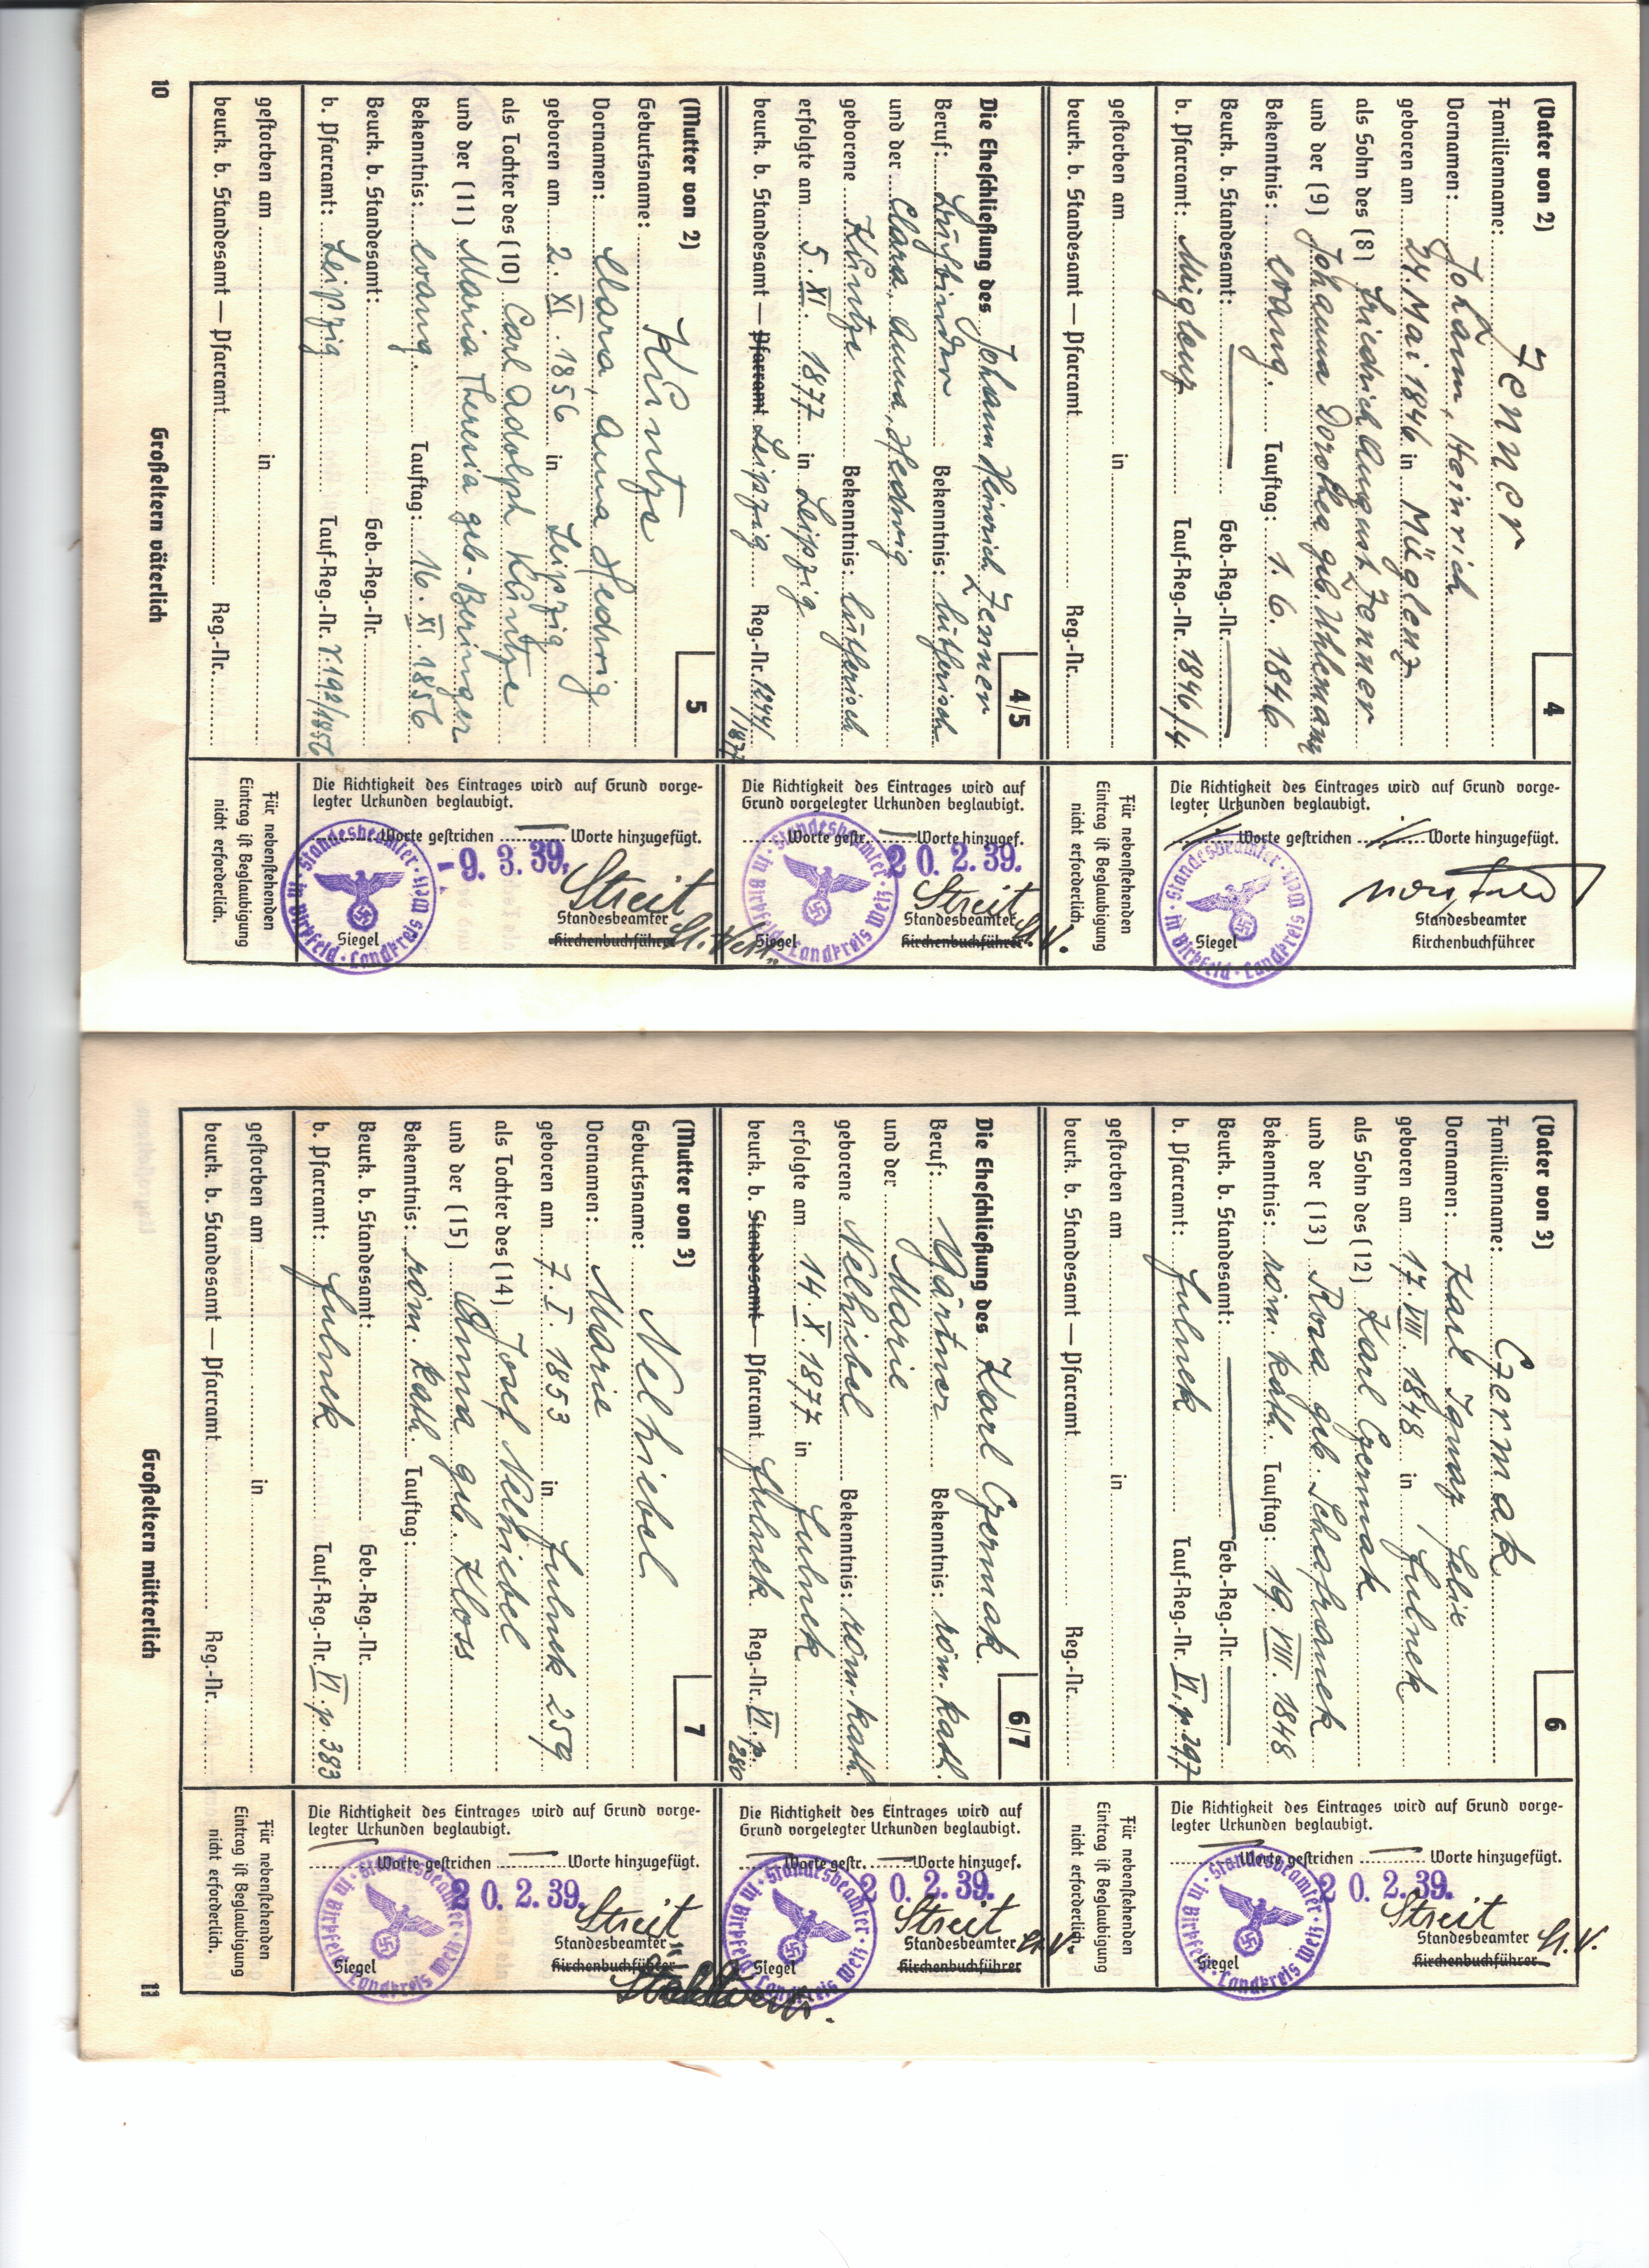 (Vater von 2)
4
Familienname: Zenner
Vornamen: Johann, Heinrich
geboren am 24. Mai 1846 in Müglenz
als Sohn des (8) Friedrich August Zenner
und der (9) Johanna Dorothea geb. Uhlemann
Bekenntnis: evang. Tauftag: 1. 6. 1846
Beurk. b. Standesamt: Geb.-Reg.-Nr.
b. Pfarramt: Müglenz Tauf-Reg.-Nr. 1846/4
gestorben am in
beurk. b. Standesamt — Pfarramt Reg.-Nr.
Die Richtigkeit des Eintrages wird auf Grund vorge-
legter Urkunden beglaubigt.
Worte gestrichen Worte hinzugefügt.
Standesbeamter
Siegel Kirchenbuchführer
Standesbeamter in Birkfeld · Landkreis Weiz
Für nebenstehenden
Eintrag ist Beglaubigung
nicht erforderlich.
Die Eheschließung des Johann Heinrich Zenner
4/5
Beruf: Buchbinder Bekenntnis: lutherisch
und der Clara, Anna, Hedwig
geborene Küntze Bekenntnis: lutherisch
erfolgte am 5. XI. 1877 in Leipzig
beurk. b. Standesamt — Pfarramt Leipzig Reg.-Nr. 1244/
1877
Die Richtigkeit des Eintrages wird auf
Grund vorgelegter Urkunden beglaubigt.
Worte gestr. Worte hinzugef.
20. 2. 39.
Streit
Standesbeamter
Siegel Kirchenbuchführer St. V.
Standesbeamter in Birkfeld · Landkreis Weiz
(Mutter von 2)
5
Geburtsname: Küntze
Vornamen: Clara, Anna Hedwig
geboren am 2. XI. 1856 in Leipzig
als Tochter des (10) Carl Adolph Küntze
und der (11) Maria Theresia geb. Beringer
Bekenntnis: evang. Tauftag: 16. XI. 1856
Beurk. b. Standesamt: Geb.-Reg.-Nr.
b. Pfarramt: Leipzig Tauf-Reg.-Nr. 192/1856
gestorben am in
beurk. b. Standesamt — Pfarramt Reg.-Nr.
Die Richtigkeit des Eintrages wird auf Grund vorge-
legter Urkunden beglaubigt.
Worte gestrichen Worte hinzugefügt.
-9. 3. 39.
Streit
Standesbeamter
Siegel Kirchenbuchführer
Standesbeamter in Birkfeld · Landkreis Weiz
Für nebenstehenden
Eintrag ist Beglaubigung
nicht erforderlich.
10
Großeltern väterlich
(Vater von 3)
6
Familienname: Czermak
Vornamen: Karl Ignaz Felix
geboren am 17. VIII. 1848 in Fulnek
als Sohn des (12) Karl Czermak
und der (13) Rosa geb. Schafranek
Bekenntnis: röm. kath. Tauftag: 19. VIII. 1848
Beurk. b. Standesamt: Geb.-Reg.-Nr.
b. Pfarramt: Fulnek Tauf-Reg.-Nr. VI, p. 297
gestorben am in
beurk. b. Standesamt — Pfarramt Reg.-Nr.
Die Richtigkeit des Eintrages wird auf Grund vorge-
legter Urkunden beglaubigt.
Worte gestrichen Worte hinzugefügt.
20. 2. 39.
Streit
Standesbeamter St. V.
Siegel Kirchenbuchführer
Standesbeamter in Birkfeld · Landkreis Weiz
Für nebenstehenden
Eintrag ist Beglaubigung
nicht erforderlich.
Die Eheschließung des Karl Czermak
6/7
Beruf: Gärtner Bekenntnis: röm. kath.
und der Marie
geborene Nelhiebel Bekenntnis: röm. kath.
erfolgte am 14. X. 1877 in Fulnek
beurk. b. Standesamt — Pfarramt Fulnek Reg.-Nr. VI. p.
280
Die Richtigkeit des Eintrages wird auf
Grund vorgelegter Urkunden beglaubigt.
Worte gestr. Worte hinzugef.
20. 2. 39.
Streit
Standesbeamter St. V.
Siegel Kirchenbuchführer
Standesbeamter in Birkfeld · Landkreis Weiz
(Mutter von 3)
7
Geburtsname: Nelhiebel
Vornamen: Marie
geboren am 7. I. 1853 in Fulnek 259
als Tochter des (14) Josef Nelhiebel
und der (15) Anna geb. Kloss
Bekenntnis: röm. kath. Tauftag:
Beurk. b. Standesamt: Geb.-Reg.-Nr.
b. Pfarramt: Fulnek Tauf-Reg.-Nr. VI. p. 383
gestorben am in
beurk. b. Standesamt — Pfarramt Reg.-Nr.
Die Richtigkeit des Eintrages wird auf Grund vorge-
legter Urkunden beglaubigt.
Worte gestrichen Worte hinzugefügt.
20. 2. 39.
Streit
Standesbeamter
Siegel Kirchenbuchführer
Standesbeamter in Birkfeld · Landkreis Weiz
Für nebenstehenden
Eintrag ist Beglaubigung
nicht erforderlich.
Großeltern mütterlich
11